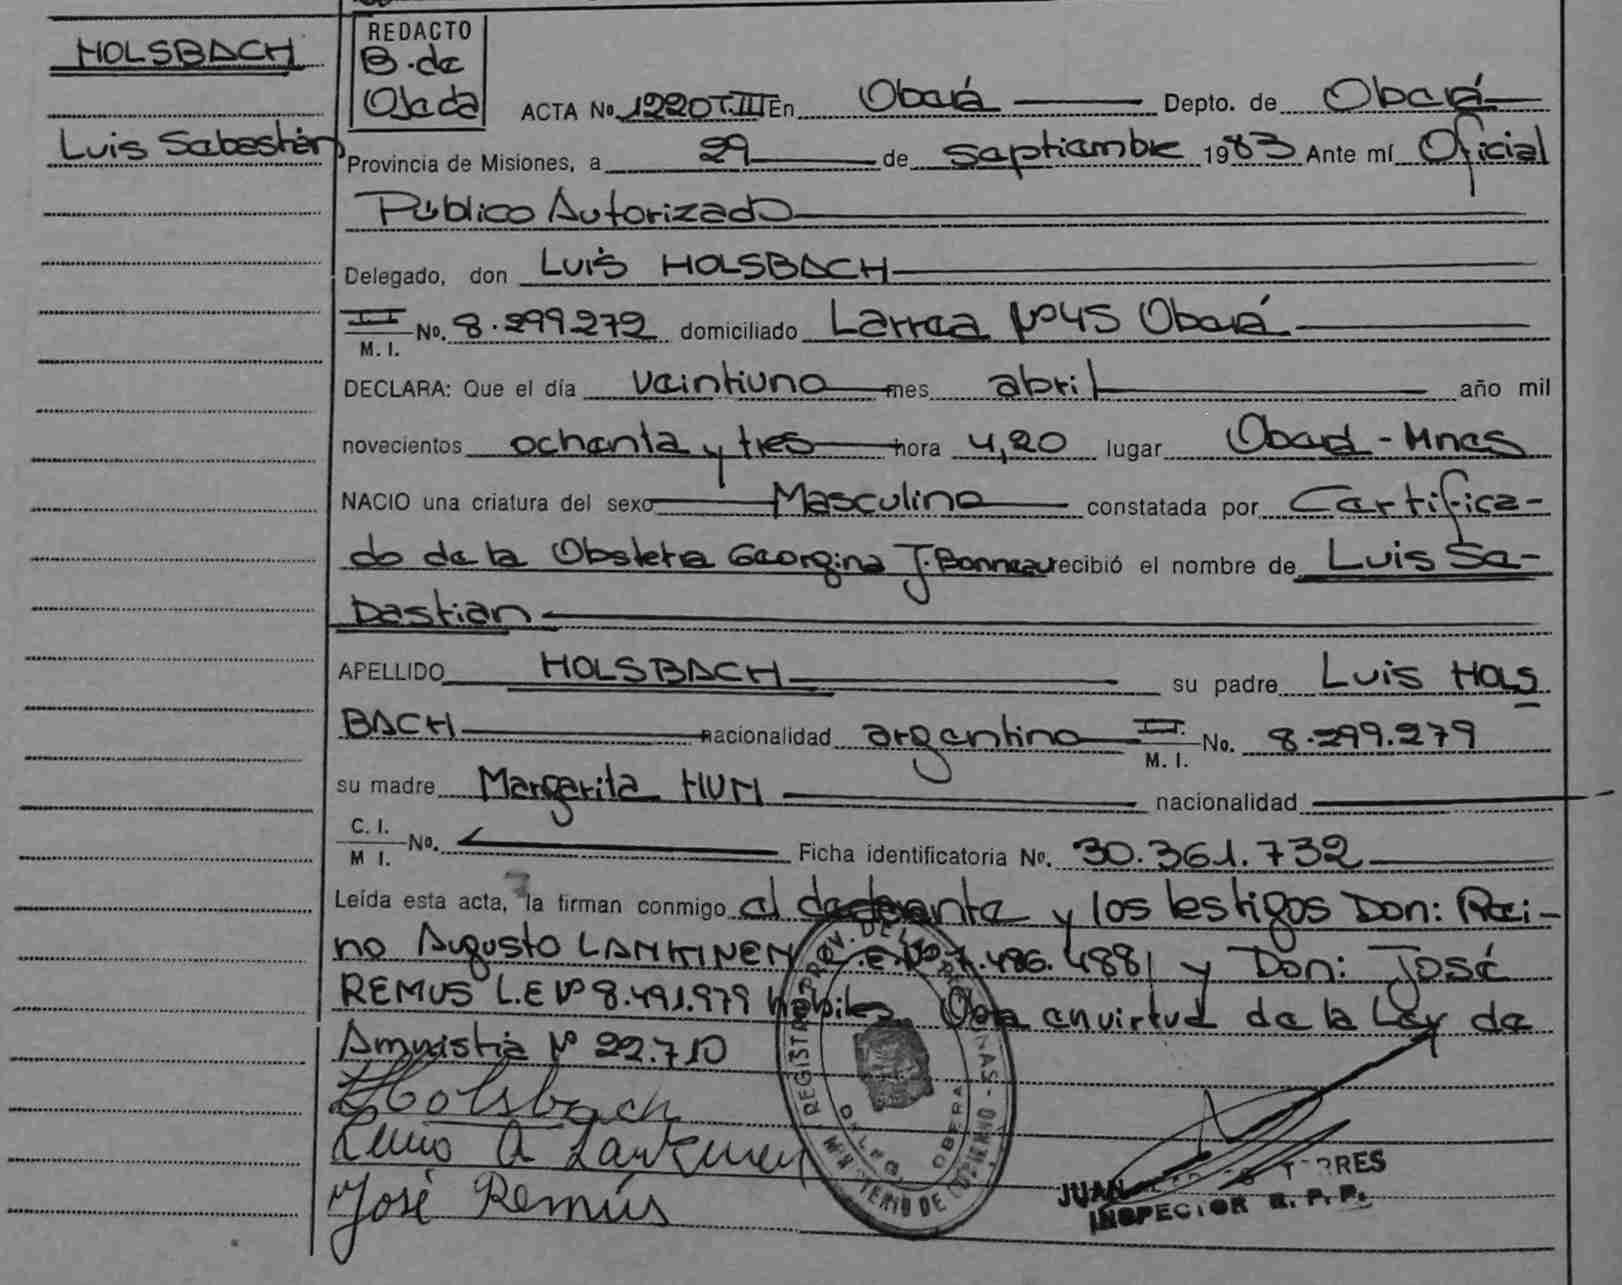 HOLSBACH
Luis Sebastián
REDACTO
B. de
Ojeda
ACTA No. 1220 T.III En Oberá Depto. de Oberá
Provincia de Misiones, a 29 de septiembre 1983 Ante mí Oficial
Público Autorizado
Delegado, don Luis HOLSBACH
M. I. No. 8.299.272 domiciliado Larrea Nº 45 Oberá
DECLARA: Que el día veintiuno mes abril año mil
novecientos ochenta y tres hora 4,20 lugar Oberá - Mnes
NACIO una criatura del sexo Masculino constatada por Certifica-
do de la Obstetra Georgina J. Bonneau recibió el nombre de Luis Se-
bastian
APELLIDO HOLSBACH su padre Luis HOLS
BACH nacionalidad argentino M. I. No. 8.299.279
su madre Margarita HUM nacionalidad
C. I. M I. No. Ficha identificatoria No. 30.361.732
Leída esta acta, la firman conmigo el y los testigos Don: Rei-
no Augusto LANKINEN 7.486.488 y Don: José
REMUS L.E Nº 8.491.979 hábiles en virtud de la Ley de
Amnistia Nº 22.710
Holsbach
A Lankinen
José Remús
REGISTRO PROV. DE LAS PERSONAS - MINISTERIO DE GOBIERNO
DELEG. OBERA
JUAN TORRES
INSPECTOR R. P. P.